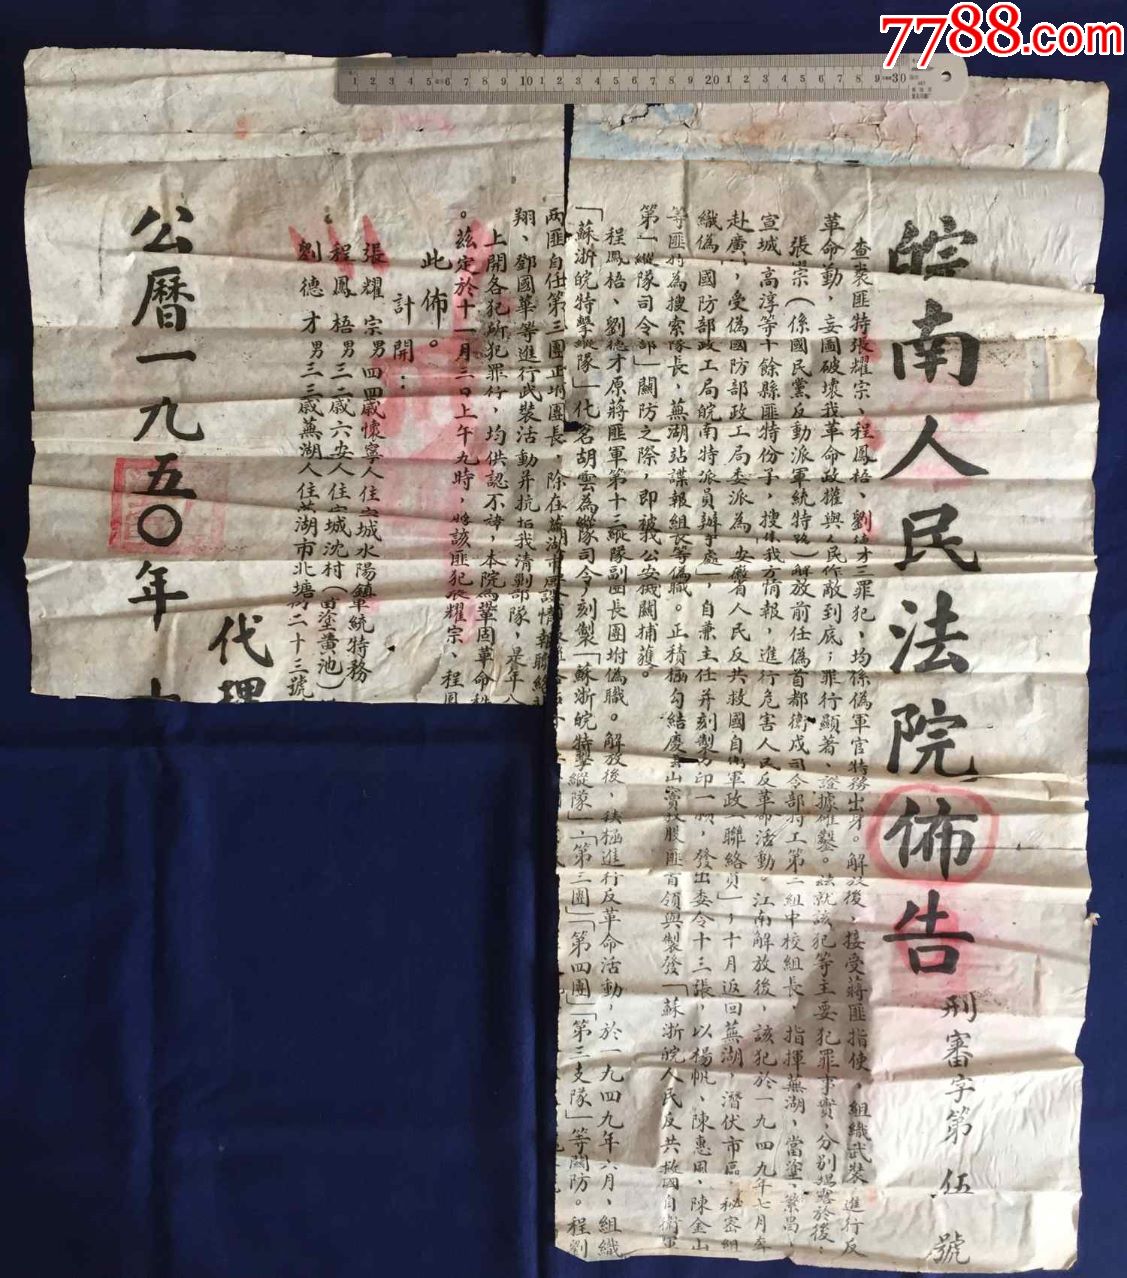 7788.com
皖南人民法院佈告
刑審字第伍號
查蔣匪特張耀宗、程鳳梧、劉德才三罪犯、均係偽軍官特務出身。解放後，接受蔣匪指使，組織武裝，進行反
革命動，妄圖破壞我革命政權與人民作敵到底；罪行顯著，證據確鑿。茲就該犯等主要犯罪事實，分別揭露於後：
張宗（係國民黨反動派軍統特務）解放前任偽首都衛戍司令部特工第二組中校組長，指揮蕪湖、當塗、繁昌、
宣城、高淳等十餘縣匪特份子，搜集我方情報，進行危害人民反革命活動。江南解放後，該犯於一九四九年七月奔
赴廣，受偽國防部政工局委派為「安徽省人民反共救國自衛軍政工聯絡員」，十月返回蕪湖，潛伏市區，秘密組
織偽「國防部政工局皖南特派員辦事處」，自兼主任并刻製，發出委令十三張，以楊帆、陳惠風、陳金山
等匪為搜索隊長，蕪湖站諜報組長等偽職。正積極勾結慶山實股匪首領與製發「蘇浙皖人民反共救國自衛軍
第一縱隊司令部」關防之際，即被我公安機關捕獲。
程鳳梧、劉德才原蔣匪軍第十三縱隊副團長團附偽職。解放後，積極進行反革命活動，於一九四九年六月，組織
「蘇浙皖特擊縱隊」化名胡雲為縱隊司令刻製「蘇浙皖特擊縱隊」、「第三團」「第四團」「第三支隊」等關防。程劉
兩匪自任第三團正附團長，除在蕪湖市
翔、鄧國華等進行武裝活動并抗拒我清剿部隊，是年八
上開各犯所犯罪行，均供認不諱，本院為鞏固革命秩
。茲定於十一月三日上午九時，將該匪犯張耀宗、程鳳
此佈。
計開：
張耀宗男四四歲懷寧人住宣城水陽鎮軍統特務
程鳳梧男三二歲六安人住宣城沈村（當塗黃池）
劉德才男三三歲蕪湖人住蕪湖市北塘灣二十三號
代理
公曆一九五〇年十